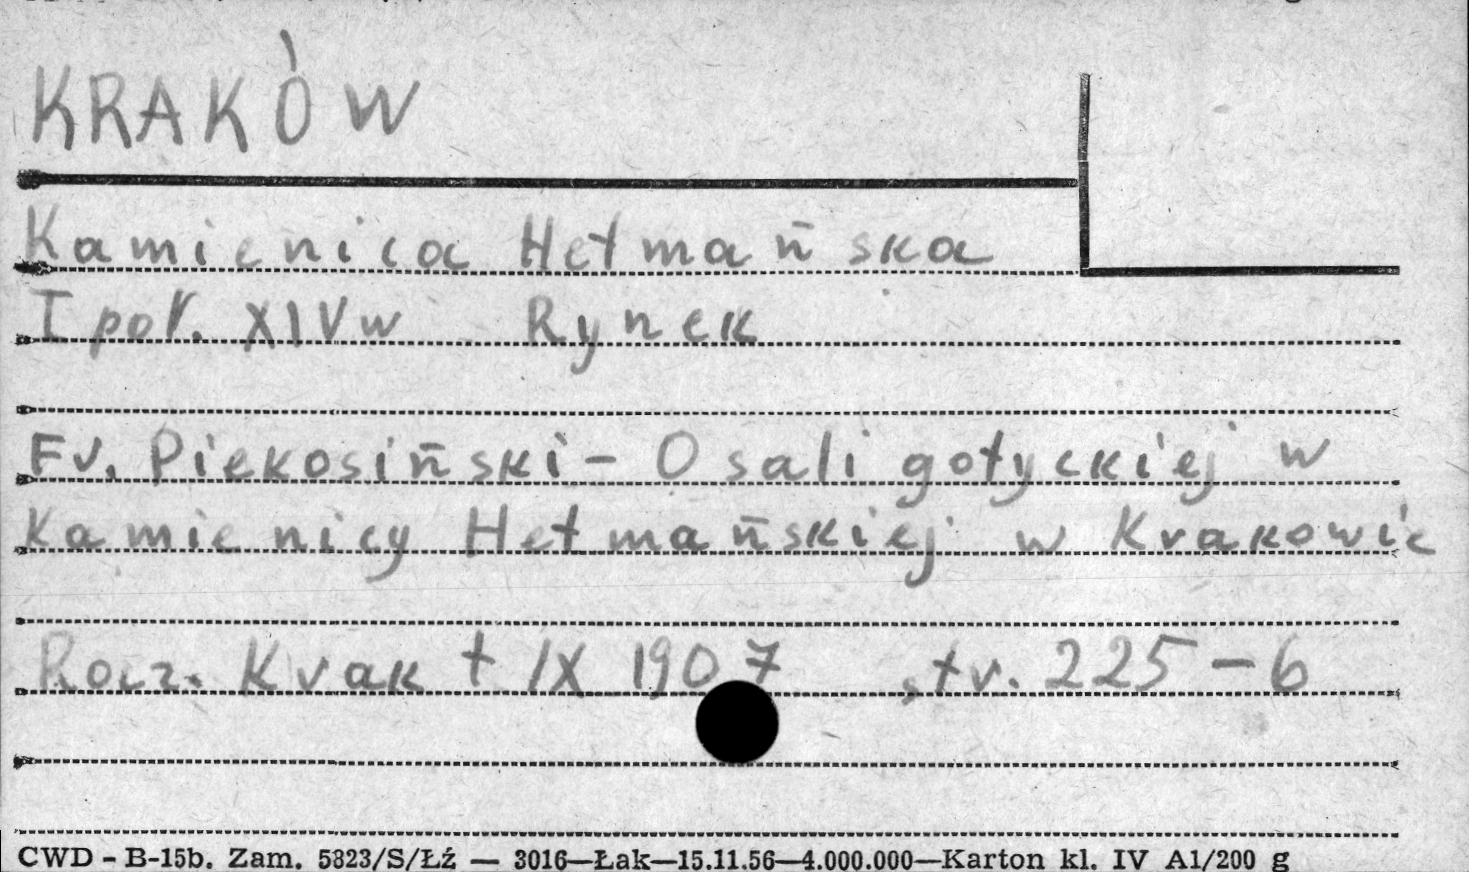 KRAKÓW
Kamienica Hetmańska
I poł. XIV w Rynek
Fr. Piekosiński - O sali gotyckiej w
Kamienicy Hetmańskiej w Krakowie
Rocz. Krak t IX 1907 str. 225-6
CWD - B-15b. Zam. 5823/S/Łź — 3016—Łak—15.11.56—4.000.000—Karton kl. IV A1/200 g